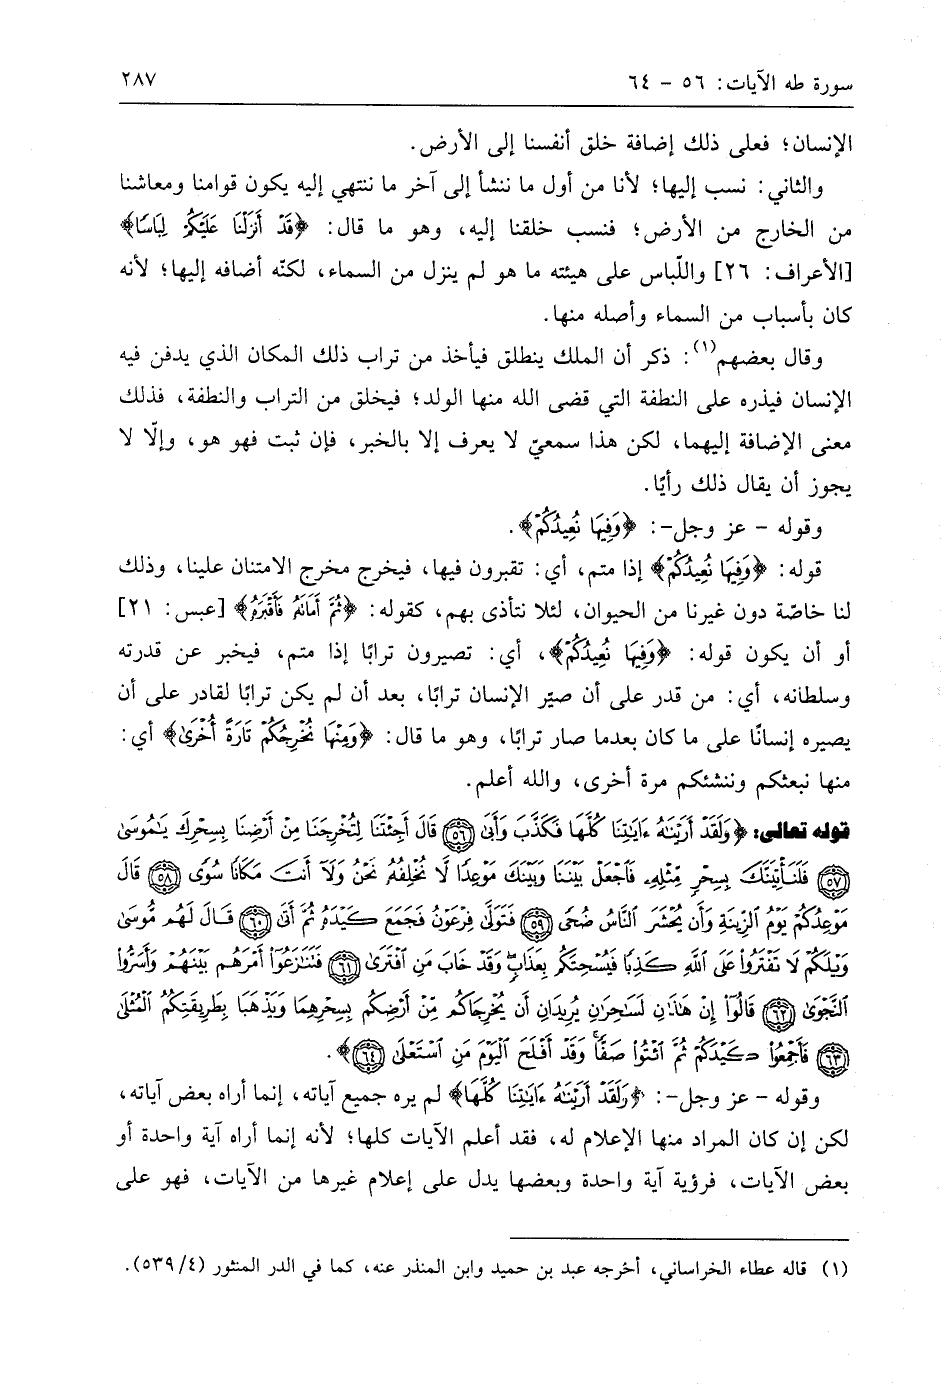 سورة طه الآيات: ٥٦ - ٦٤ ٢٨٧
الإنسان؛ فعلى ذلك إضافة خلق أنفسنا إلى الأرض.
والثاني: نسب إليها؛ لأنا من أول ما ننشأ إلى آخر ما ننتهي إليه يكون قوامنا ومعاشنا
من الخارج من الأرض؛ فنسب خلقنا إليه، وهو ما قال: ﴿قَدْ أَنزَلْنَا عَلَيْكُمْ لِبَاسًا﴾
[الأعراف: ٢٦] واللّباس على هيئته ما هو لم ينزل من السماء، لكنّه أضافه إليها؛ لأنه
كان بأسباب من السماء وأصله منها.
وقال بعضهم(١): ذكر أن الملك ينطلق فيأخذ من تراب ذلك المكان الذي يدفن فيه
الإنسان فيذره على النطفة التي قضى الله منها الولد؛ فيخلق من التراب والنطفة، فذلك
معنى الإضافة إليهما، لكن هذا سمعيّ لا يعرف إلا بالخبر، فإن ثبت فهو هو، وإلّا لا
يجوز أن يقال ذلك رأيًا.
وقوله - عز وجل-: ﴿وَفِيهَا نُعِيدُكُمْ﴾.
قوله: ﴿وَفِيهَا نُعِيدُكُمْ﴾ إذا متم، أي: تقبرون فيها، فيخرج مخرج الامتنان علينا، وذلك
لنا خاصّة دون غيرنا من الحيوان، لئلا نتأذى بهم، كقوله: ﴿ثُمَّ أَمَاتَهُ فَأَقْبَرَهُ﴾ [عبس: ٢١]
أو أن يكون قوله: ﴿وَفِيهَا نُعِيدُكُمْ﴾، أي: تصيرون ترابًا إذا متم، فيخبر عن قدرته
وسلطانه، أي: من قدر على أن صيّر الإنسان ترابًا، بعد أن لم يكن ترابًا لقادر على أن
يصيره إنسانًا على ما كان بعدما صار ترابًا، وهو ما قال: ﴿وَمِنْهَا نُخْرِجُكُمْ تَارَةً أُخْرَىٰ﴾ أي:
منها نبعثكم وننشئكم مرة أخرى، والله أعلم.
قوله تعالى: ﴿وَلَقَدْ أَرَيْنَـٰهُ ءَايَـٰتِنَا كُلَّهَا فَكَذَّبَ وَأَبَىٰ ٥٦ قَالَ أَجِئْتَنَا لِتُخْرِجَنَا مِنْ أَرْضِنَا بِسِحْرِكَ يَـٰمُوسَىٰ
٥٧ فَلَنَأْتِيَنَّكَ بِسِحْرٍ مِّثْلِهِۦ فَٱجْعَلْ بَيْنَنَا وَبَيْنَكَ مَوْعِدًا لَّا نُخْلِفُهُۥ نَحْنُ وَلَآ أَنتَ مَكَانًا سُوًى ٥٨ قَالَ
مَوْعِدُكُمْ يَوْمُ ٱلزِّينَةِ وَأَن يُحْشَرَ ٱلنَّاسُ ضُحًى ٥٩ فَتَوَلَّىٰ فِرْعَوْنُ فَجَمَعَ كَيْدَهُۥ ثُمَّ أَتَىٰ ٦٠ قَالَ لَهُم مُّوسَىٰ
وَيْلَكُمْ لَا تَفْتَرُوا۟ عَلَى ٱللَّهِ كَذِبًا فَيُسْحِتَكُم بِعَذَابٍ وَقَدْ خَابَ مَنِ ٱفْتَرَىٰ ٦١ فَتَنَـٰزَعُوٓا۟ أَمْرَهُم بَيْنَهُمْ وَأَسَرُّوا۟
ٱلنَّجْوَىٰ ٦٢ قَالُوٓا۟ إِنْ هَـٰذَٰنِ لَسَـٰحِرَٰنِ يُرِيدَانِ أَن يُخْرِجَاكُم مِّنْ أَرْضِكُم بِسِحْرِهِمَا وَيَذْهَبَا بِطَرِيقَتِكُمُ ٱلْمُثْلَىٰ
٦٣ فَأَجْمِعُوا۟ كَيْدَكُمْ ثُمَّ ٱئْتُوا۟ صَفًّا وَقَدْ أَفْلَحَ ٱلْيَوْمَ مَنِ ٱسْتَعْلَىٰ ٦٤﴾.
وقوله - عز وجل-: ﴿وَلَقَدْ أَرَيْنَـٰهُ ءَايَـٰتِنَا كُلَّهَا﴾ لم يره جميع آياته، إنما أراه بعض آياته،
لكن إن كان المراد منها الإعلام له، فقد أعلم الآيات كلها؛ لأنه إنما أراه آية واحدة أو
بعض الآيات، فرؤية آية واحدة وبعضها يدل على إعلام غيرها من الآيات، فهو على
(١) قاله عطاء الخراساني، أخرجه عبد بن حميد وابن المنذر عنه، كما في الدر المنثور (٤/٥٣٩).